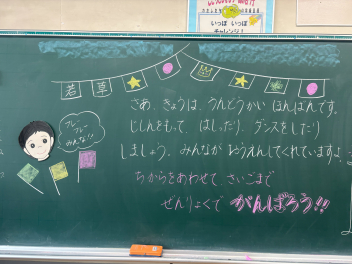 いっぽ いっぽ
チャレンジ!
若草
フレー
フレー
みんな!!
さあ、きょうは、うんどうかい ほんばんです。
じしんをもって、はしったり、ダンスをしたり
しましょう。みんながおうえんしてくれていますよ。
ちからをあわせて、さいごまで
ぜんりょくで がんばろう!!